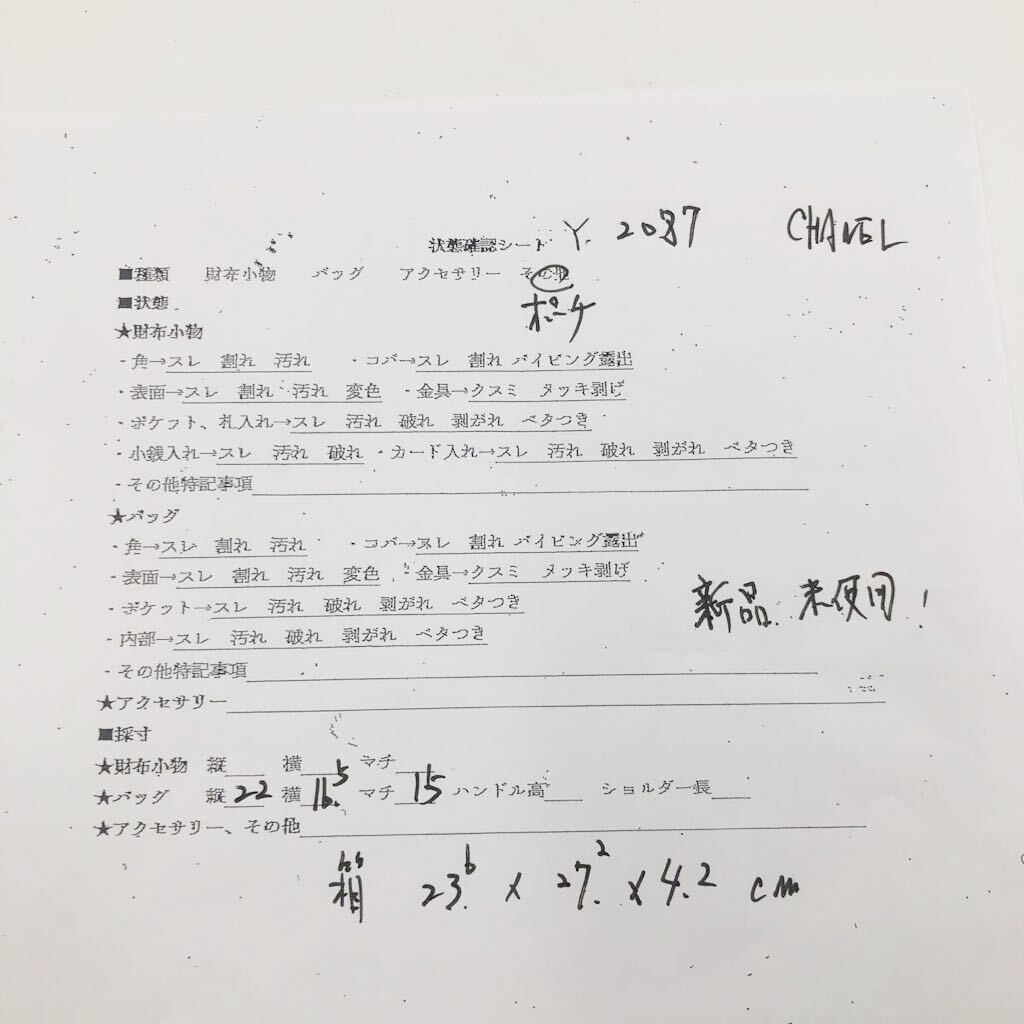 状態確認シート Y. 2087 CHANEL
■種類 財布小物 バッグ アクセサリー その他
■状態 ポーチ
★財布小物
・角→スレ 割れ 汚れ ・コバ→スレ 割れ パイピング露出
・表面→スレ 割れ 汚れ 変色 ・金具→クスミ メッキ剥げ
・ポケット、札入れ→スレ 汚れ 破れ 剥がれ ベタつき
・小銭入れ→スレ 汚れ 破れ ・カード入れ→スレ 汚れ 破れ 剥がれ ベタつき
・その他特記事項
★バッグ
・角→スレ 割れ 汚れ ・コバ→スレ 割れ パイピング露出
・表面→スレ 割れ 汚れ 変色 ・金具→クスミ メッキ剥げ
・ポケット→スレ 汚れ 破れ 剥がれ ベタつき
新品. 未使用!
・内部→スレ 汚れ 破れ 剥がれ ベタつき
・その他特記事項
★アクセサリー
■採寸
★財布小物 縦 横 マチ
★バッグ 縦22 横16.5 マチ15 ハンドル高 ショルダー長
★アクセサリー、その他
箱 23.6 x 27.2 x 4.2 cm